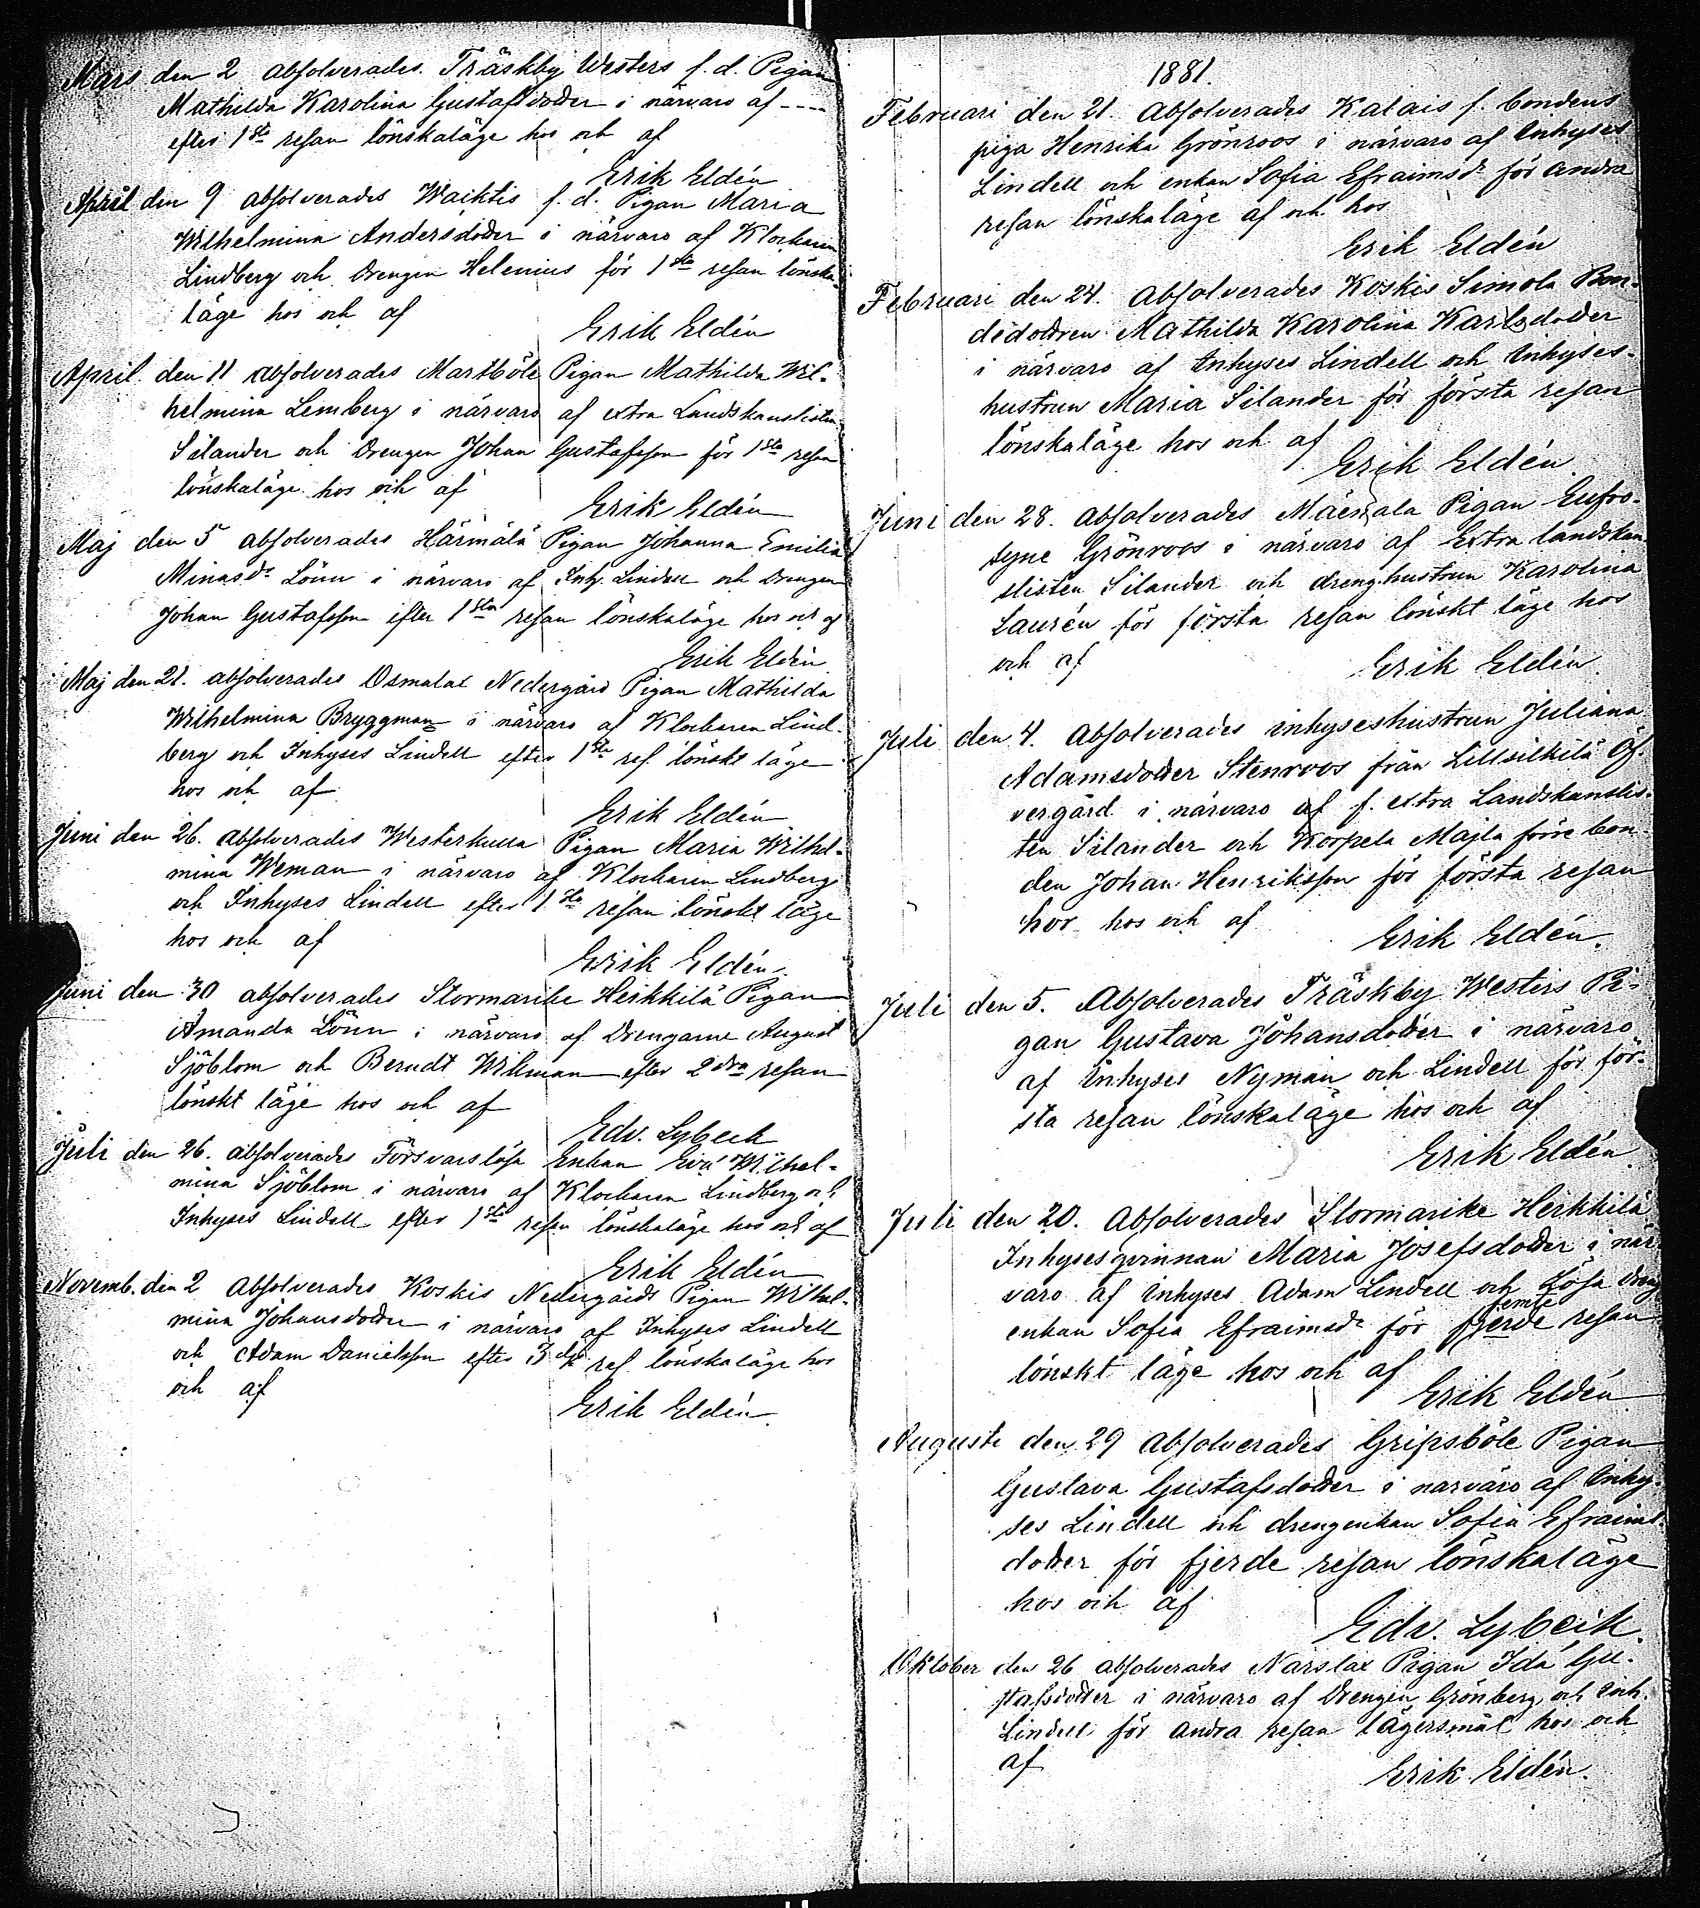 Mars den 2 absolverades Träskby Westers f. d. Pigan
Mathilda Karolina Gustafsdotter i närvaro af ----
efter 1sta resan lönskaläge hos och af
Erik Eldén
April den 9 absolverades Waiktis f. d. Pigan Maria
Wilhelmina Andersdotter i närvaro af Klockaren
Lindberg och Drengen Helenius för 1sta resan lönska-
läge hos och af
Erik Eldén
April den 11 absolverades Martböle Pigan Mathilda Wil-
helmina Lemberg i närvaro af extra Landskanslisten
Silander och Drengen Johan Gustafsson för 1sta resan
lönskaläge hos och af
Erik Eldén
Maj den 5 absolverades Härmälä Pigan Johanna Emilia
Minasdr Lönn i närvaro af Inh. Lindell och Drengen
Johan Gustafsson efter 1sta resan lönskaläge hos och af
Erik Eldén
Maj den 21. absolverades Osmalax Nedergård Pigan Mathilda
Wilhelmina Bryggman i närvaro af Klockaren Lind-
berg och Inhyses Lindell efter 1sta res. lönskt läge
hos och af
Erik Eldén
Juni den 26. absolverades Westerkulla Pigan Maria Wilhel-
mina Weman i närvaro af Klockaren Lindberg
och Inhyses Lindell efter 1sta resan lönskt läge
hos och af
Erik Eldén.
Juni den 30 absolverades Stormarike Heikkilä Pigan
Amanda Lönn i närvaro af Drengarne August
Sjöblom och Berndt Willman efter 2dra resan
lönskt läge hos och af
Edv. Lybeck
Juli den 26. absolverades Försvarslösa Enkan Eva Wilhel-
mina Sjöblom i närvaro af Klockaren Lindberg och
Inhyses Lindell efter 1sta resan lönskaläge hos och af
Erik Eldén
Novemb. den 2 absolverades Koskis Nedergårds Pigan Wilhel-
mina Johansdotter i närvaro af Inhyses Lindell
och Adam Danielsson efter 3dje res. lönskaläge hos
och af
Erik Eldén.
1881.
Februari den 21. absolverades Kalais f. bondens
piga Henrika Grönroos i närvaro af Inhyses
Lindell och enkan Sofia Efraimsdr för andra
resan lönskaläge af och hos
Erik Eldén
Februari den 24. absolverades Koskis Simola Bon-
dedottren Mathilda Karolina Karlsdotter
i närvaro af Inhyses Lindell och Inhyses-
hustrun Maria Silander för första resan
lönskaläge hos och af
Erik Eldén.
Juni den 28. absolverades Pigan Eufro-
syne Grönroos i närvaro af Extra landskan-
slisten Silander och drenghustrun Karolina
Laurén för första resan lönskt läge hos
och af
Erik Eldén.
Juli den 4. absolverades inhyseshustrun Juliana
Adamsdotter Stenroos från Lillsilkilä Öf-
vergård i närvaro af f. extra Landskanslis-
ten Silander och Korpela Majla förre bon-
den Johan Henriksson för första resan
hor hos och af
Erik Eldén.
Juli den 5. Absolverades Träskby Westers Pi-
gan Gustava Johansdotter i närvaro
af Inhyses Nyman och Lindell för för-
sta resan lönskaläge hos och af
Erik Eldén.
Juli den 20. absolverades Stormarike Heikkilä
Inhysesqvinnan Maria Josefsdotter i när-
varo af Inhyses Adam Lindell och Lösa dreng
femte
enkan Sofia Efraimsdr för fjerde resan
lönskt läge hos och af
Erik Eldén
Augusti den 29 absolverades Gripsböle Pigan
Gustava Gustafsdotter i närvaro af Inhy-
ses Lindell och drengenkan Sofia Efraims-
dotter för fjerde resan lönskaläge
hos och af
Edv. Lybeck.
Oktober den 26 absolverades Narslax Pigan Ida Gu-
stafsdotter i närvaro af Drengen Grönberg och Inh.
Lindell för andra resan lägersmål hos och
af
Erik Eldén.